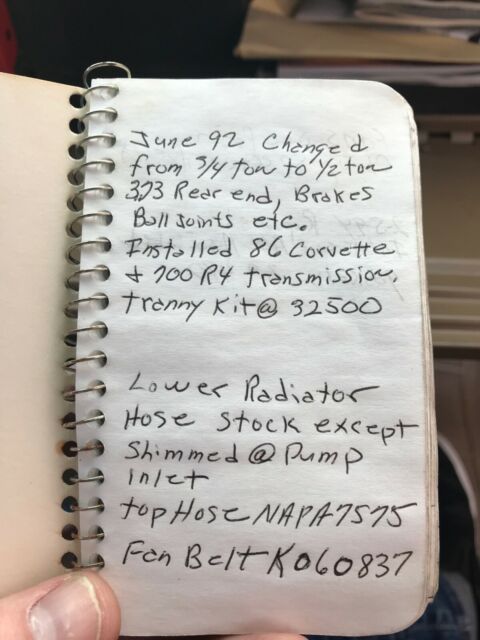 June 92 Changed
from 3/4 ton to 1/2 ton
3.73 Rear end, Brakes
Ball joints etc.
Installed 86 Corvette
+ 700 R4 transmission,
tranny Kit @ 32500
Lower Radiator
Hose stock except
Shimmed @ Pump
inlet
top Hose NAPA 7575
Fan Belt K060837